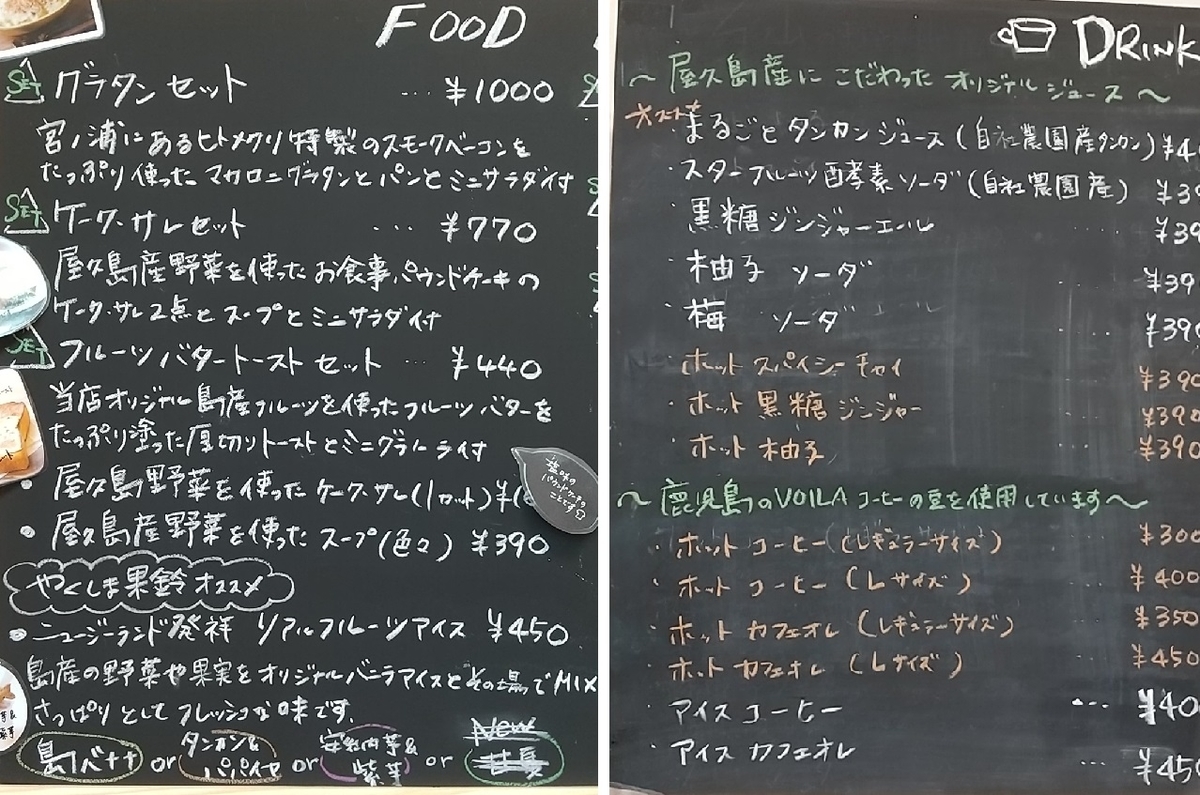 FOOD
SET グラタンセット ... ¥1000
宮ノ浦にあるヒトメクリ特製のスモークベーコンを
たっぷり使ったマカロニグラタンとパンとミニサラダイ付
SET ケーク・サレセット ... ¥770
屋久島産野菜を使ったお食事パウンドケーキの
ケーク・サレ2点とスープとミニサラダイ付
SET フルーツバタートーストセット ... ¥440
当店オリジナル島産フルーツを使ったフルーツバターを
たっぷり塗った厚切りトーストとミニグラノーライ付
・屋久島野菜を使ったケーク・サレ(1カット)
塩味の
パウンドケーキの
ことです
・屋久島産野菜を使ったスープ(色々) ¥390
やくしま果鈴オススメ
・ニュージーランド発祥 リアルフルーツアイス ¥450
島産の野菜や果実をオリジナルバニラアイスとその場でMIX
さっぱりとしてフレッシュな味です。
島バナナ or タンカン&パパイヤ or 安納芋&紫芋 or
New
DRINK
～屋久島産にこだわったオリジナルジュース～
・まるごとタンカンジュース(自社農園産タンカン)
・スターフルーツ酵素ソーダ(自社農園産)
・黒糖ジンジャーエール
・柚子 ソーダ
・梅 ソーダ ¥390
・ホットスパイシーチャイ ¥390
・ホット黒糖ジンジャー ¥390
・ホット柚子 ... ¥390
～鹿児島のVOILAコーヒーの豆を使用しています～
・ホットコーヒー(レギュラーサイズ) ¥300
・ホットコーヒー(Lサイズ) ¥400
・ホットカフェオレ(レギュラーサイズ) ¥350
・ホットカフェオレ(Lサイズ) ¥450
・アイスコーヒー ...
・アイスカフェオレ ...